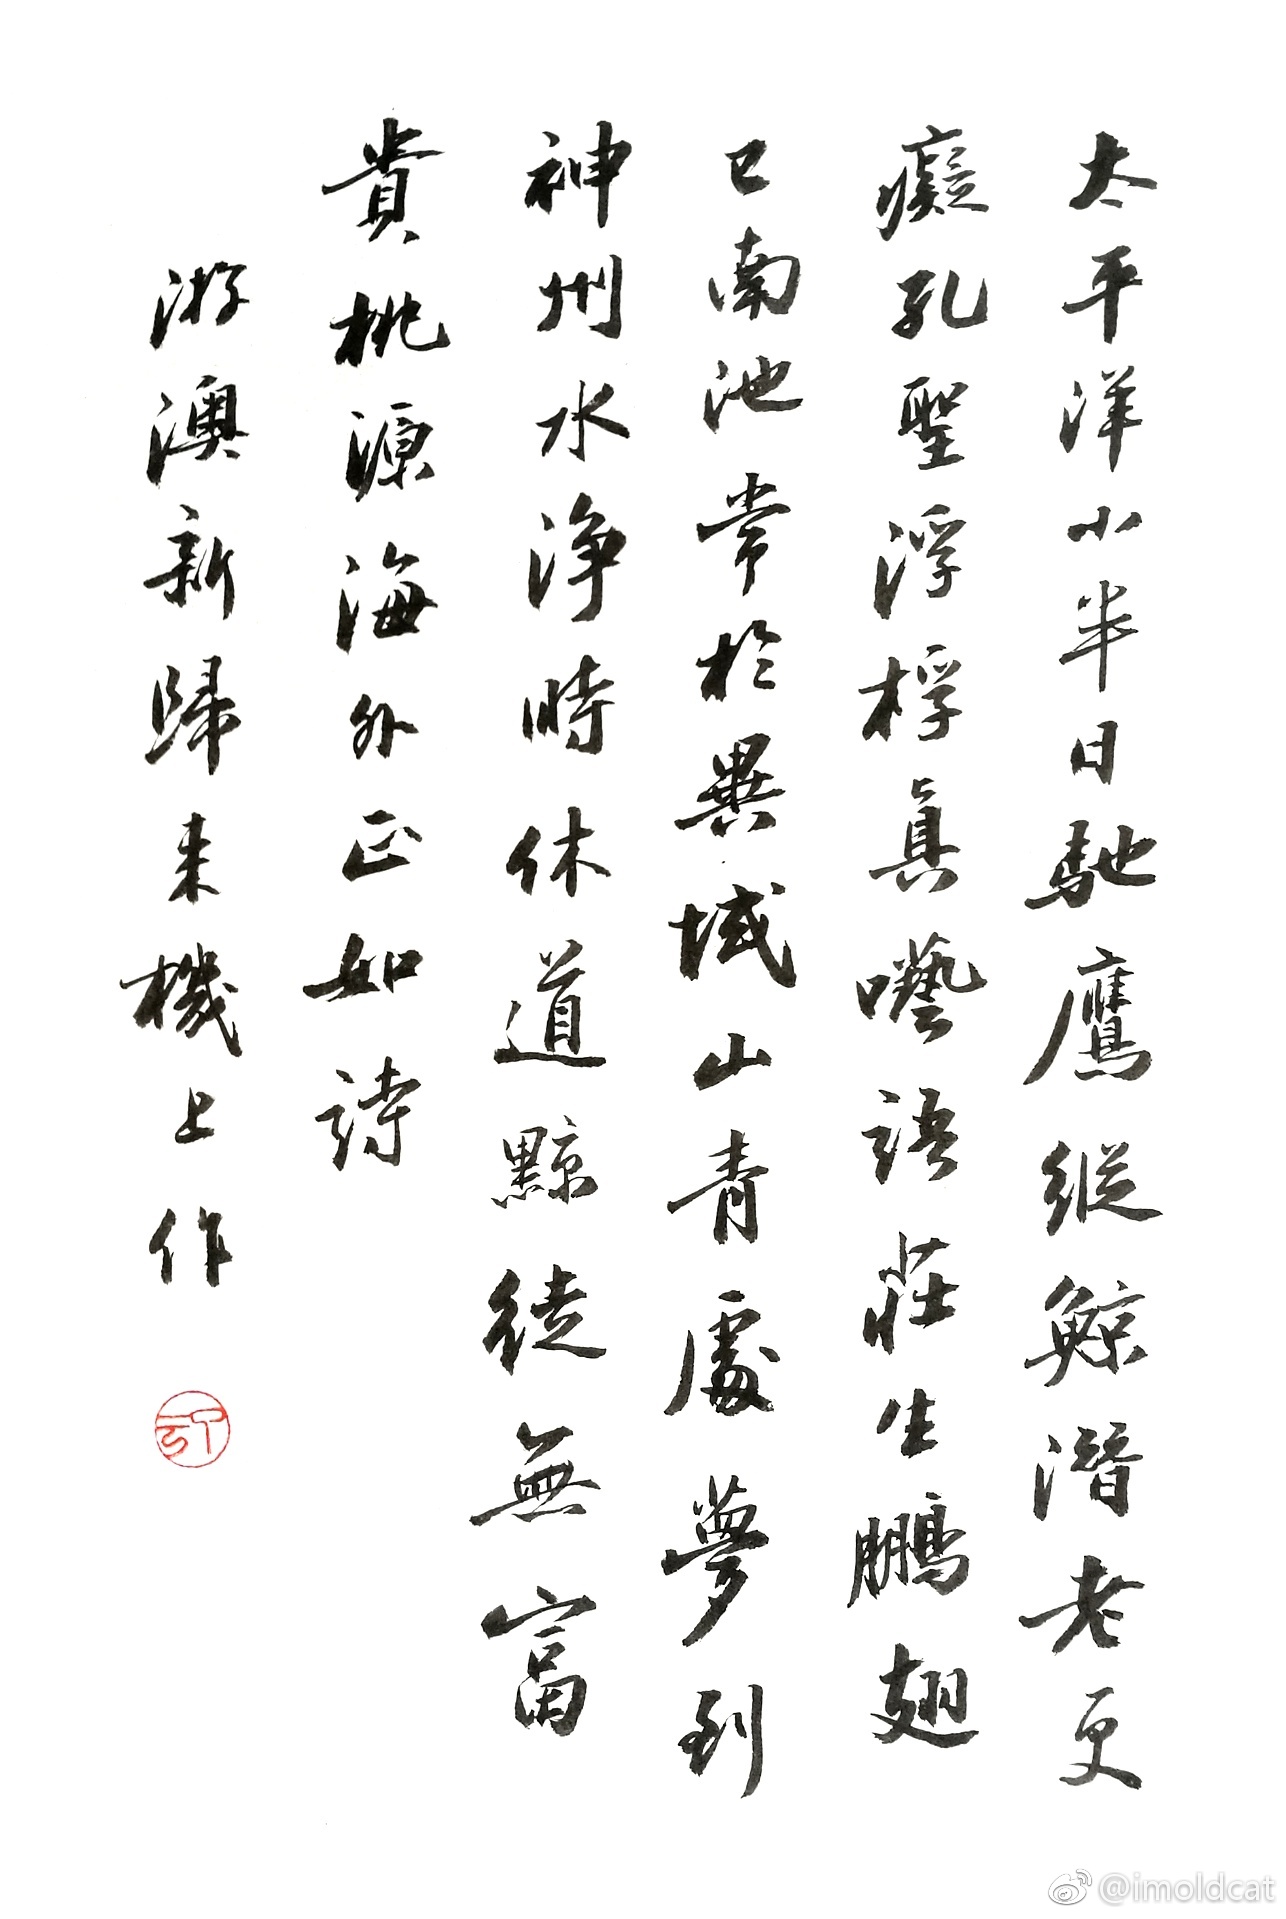 太平洋小半日馳鷹縱鯨潛老更
癡孔聖浮桴真囈語莊生鵬翅
已南池常於異域山青處夢到
神州水淨時休道黥徒無富
貴桃源海外正如詩
游澳新歸来機上作
@imoldcat